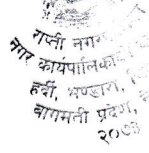 राप्ती नगर
नगर कार्यपालिका
हर्दी, भण्डारा,
बागमती प्रदेश,
२०७३